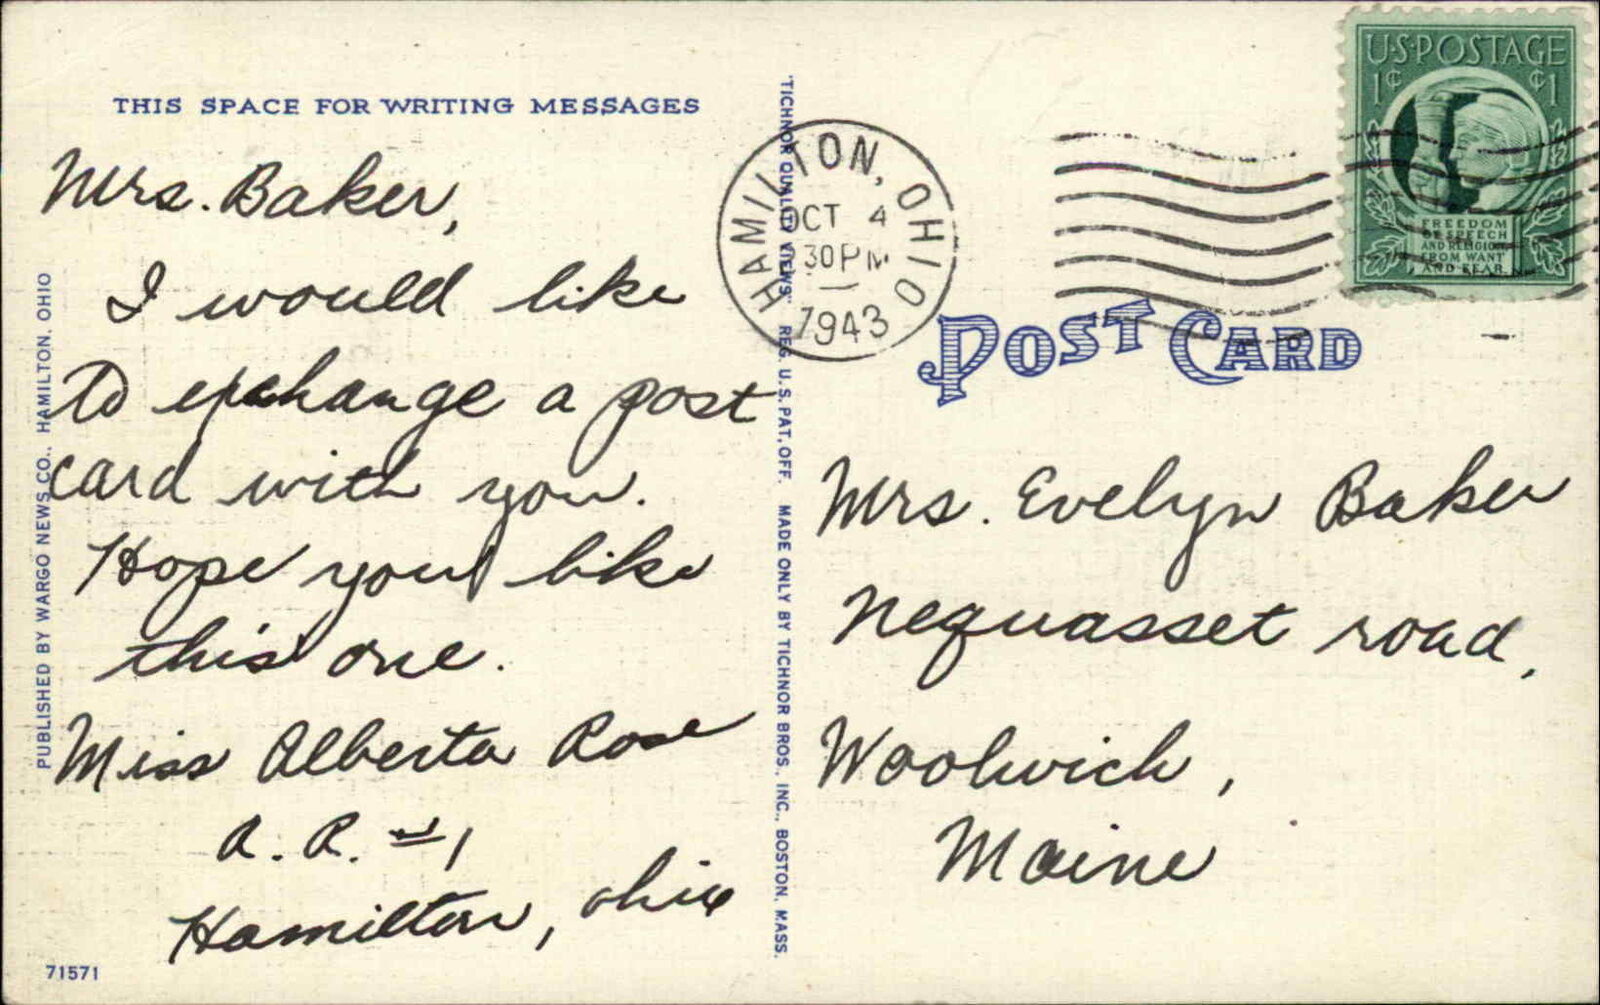 THIS SPACE FOR WRITING MESSAGES
Mrs. Baker,
I would like
to exchange a post
card with you.
Hope you like
this one.
Miss Alberta Rose
R. R. #1
Hamilton, Ohio
PUBLISHED BY WARGO NEWS CO., HAMILTON, OHIO
71571
"TICHNOR QUALITY VIEWS" REG. U.S. PAT. OFF. MADE ONLY BY TICHNOR BROS., INC., BOSTON, MASS.
HAMILTON, OHIO
OCT 4
30 PM
1943
U·S·POSTAGE
1¢ ¢1
FREEDOM
OF SPEECH
AND RELIGION
FROM WANT
AND FEAR
POST CARD
Mrs. Evelyn Baker
Nequasset road,
Woolwich,
Maine